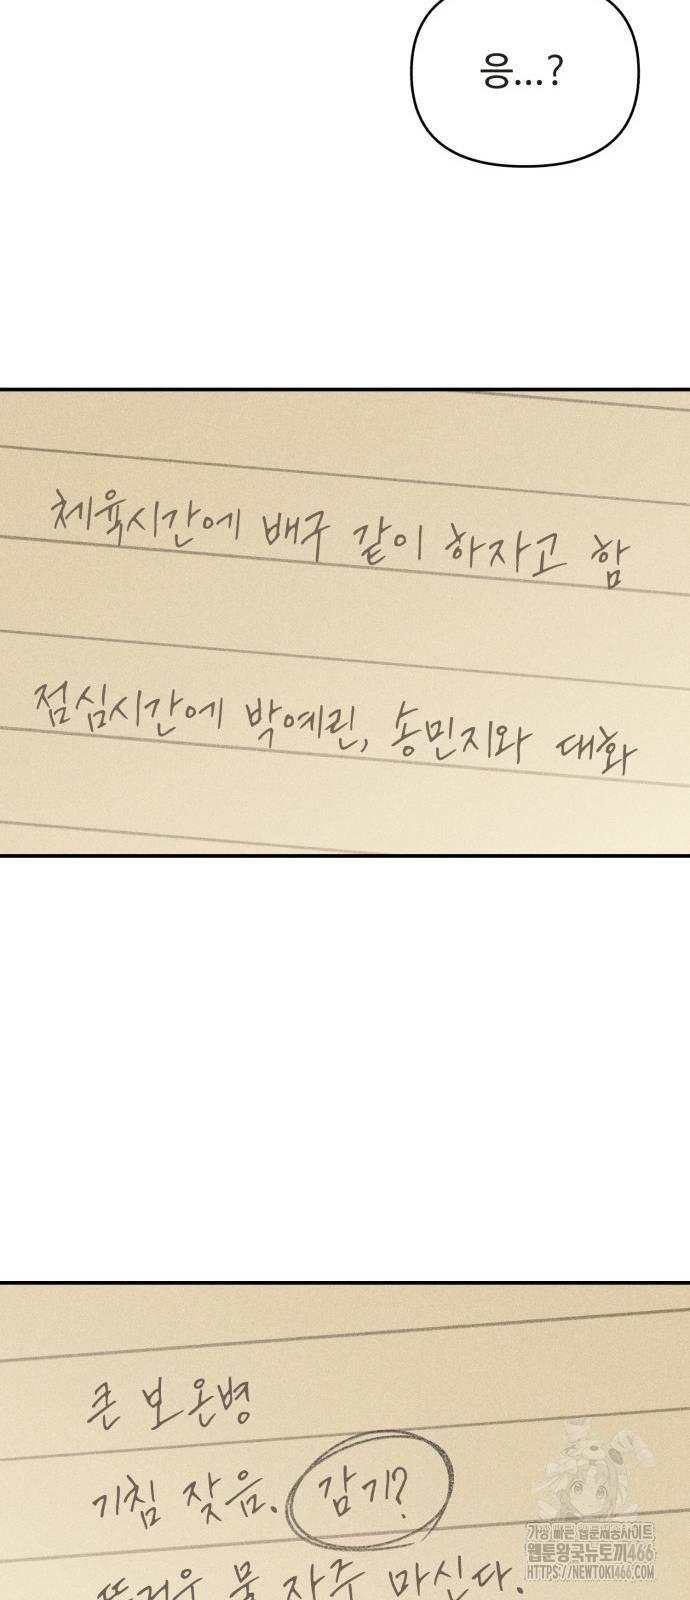 응...?
체육시간에 배구 같이 하자고 함
점심시간에 박예린, 송민지와 대화
큰 보온병
기침 잦음. 감기?
뜨거운 물 자주 마신다.
가장 빠른 웹툰제공사이트
웹툰왕국뉴토끼466
HTTPS://NEWTOKI466.COM